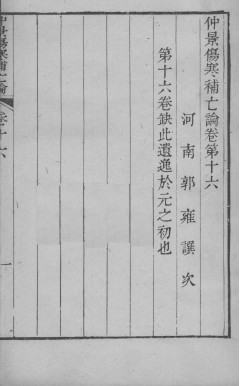 仲景傷寒補亡論卷第十六
河南郭雍譔次
第十六卷缺此遺逸於元之初也
仲景傷寒補亡論
卷十六
一